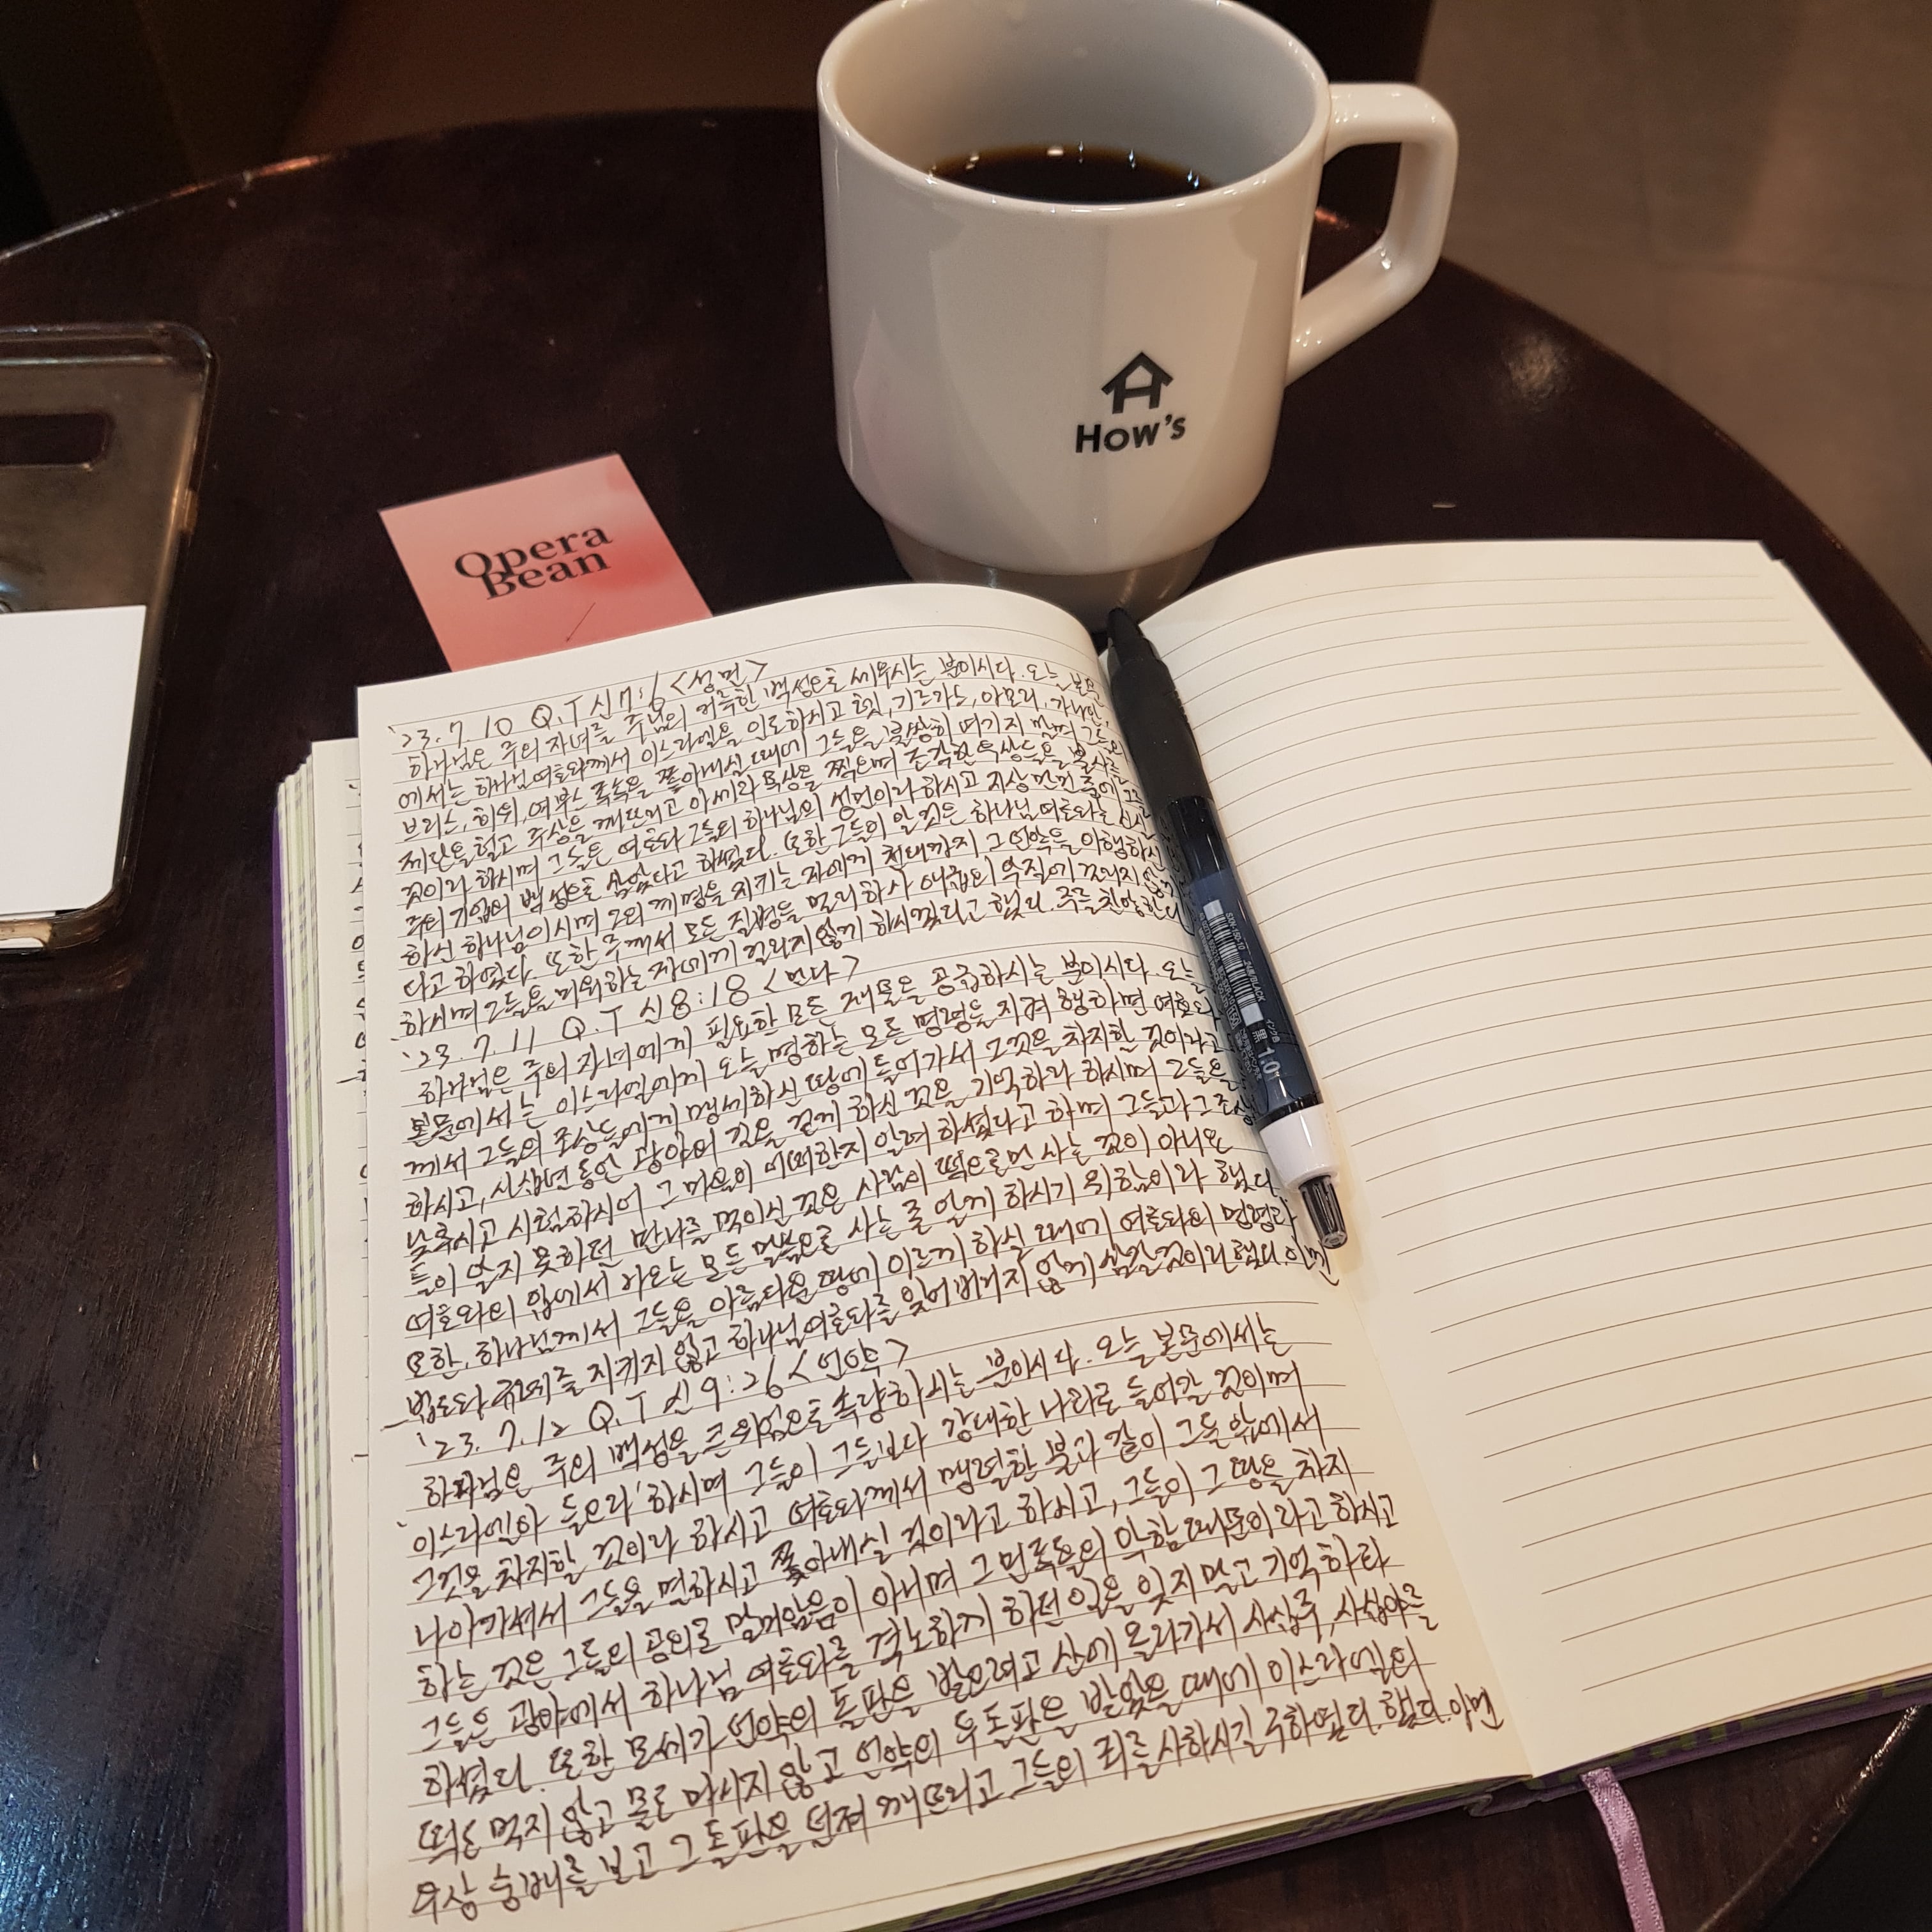 How's
Opera
Bean
'23. 7. 10 Q.T 신7:6 <성민>
하나님은 주의 자녀를 주님의 거룩한 백성으로 세우시는 분이시다. 오늘 본문
에서는 하나님 여호와께서 이스라엘을 인도하시고 헷, 기르가스, 아모리, 가나안,
브리스, 히위, 여부스 족속을 쫓아내실 때에 그들을 불쌍히 여기지 말며 그들의
제단을 헐고 주상을 깨뜨리고 아세라 목상을 찍으며 조각한 우상들을 불사를
것이라 하시며 그들은 여호와 그들의 하나님의 성민이라 하시고 지상 만민 중에
주의 기업의 백성으로 삼았다고 하셨다. 또한 그들이 알 것은 하나님 여호와는 신실
하신 하나님이시며 그의 계명을 지키는 자에게 천대까지 그 언약을 이행하신
다고 하였다. 또한 주께서 모든 질병을 멀리하사 애굽의 악질에 걸리지 않게
하시며 그들을 미워하는 자에게 걸리지 않게 하시겠다고 했다. 주를 찬양한다
'23. 7. 11 Q.T 신8:18 <만나>
하나님은 주의 자녀에게 필요한 모든 재물을 공급하시는 분이시다. 오늘
본문에서는 이스라엘에게 오늘 명하는 모든 명령을 지켜 행하면 여호와
께서 그들의 조상들에게 맹세하신 땅에 들어가서 그것을 차지할 것이라고
하시고, 사십년 동안 광야의 길을 걷게 하신 것을 기억하라 하시며 그들을
낮추시고 시험하시어 그 마음이 어떠한지 알려 하셨다고 하며 그들과 그 조상
들이 알지 못하던 만나를 먹이신 것은 사람이 떡으로만 사는 것이 아니요
여호와의 입에서 나오는 모든 말씀으로 사는 줄 알게 하시기 위함이라 했다.
또한, 하나님께서 그들을 아름다운 땅에 이르게 하실 때에 여호와의 명령과
법도와 규례를 지키지 않고 하나님 여호와를 잊어버리지 않게 삼갈것이라 했다. 아멘
'23. 7. 12 Q.T 신9:26 <언약>
하나님은 주의 백성을 큰 위엄으로 속량하시는 분이시다. 오늘 본문에서는
'이스라엘아 들으라' 하시며 그들이 그들보다 강대한 나라로 들어갈 것이며
그것을 차지할 것이라 하시고 여호와께서 맹렬한 불과 같이 그들 앞에서
나아가셔서 그들을 멸하시고 쫓아내실 것이라고 하시고, 그들이 그 땅을 차지
하는 것은 그들의 공의로 말미암음이 아니며 그 민족들의 악함 때문이라고 하시고
그들은 광야에서 하나님 여호와를 격노하게 하던 일을 잊지 말고 기억하라
하셨다. 또한 모세가 언약의 돌판을 받으려고 산에 올라가서 사십주, 사십야를
떡도 먹지 않고 물도 마시지 않고 언약의 두 돌판을 받았을 때에 이스라엘의
우상 숭배를 보고 그 돌판을 던져 깨뜨리고 그들의 죄를 사하시길 구하였다. 했다. 아멘
BLACK
1.0